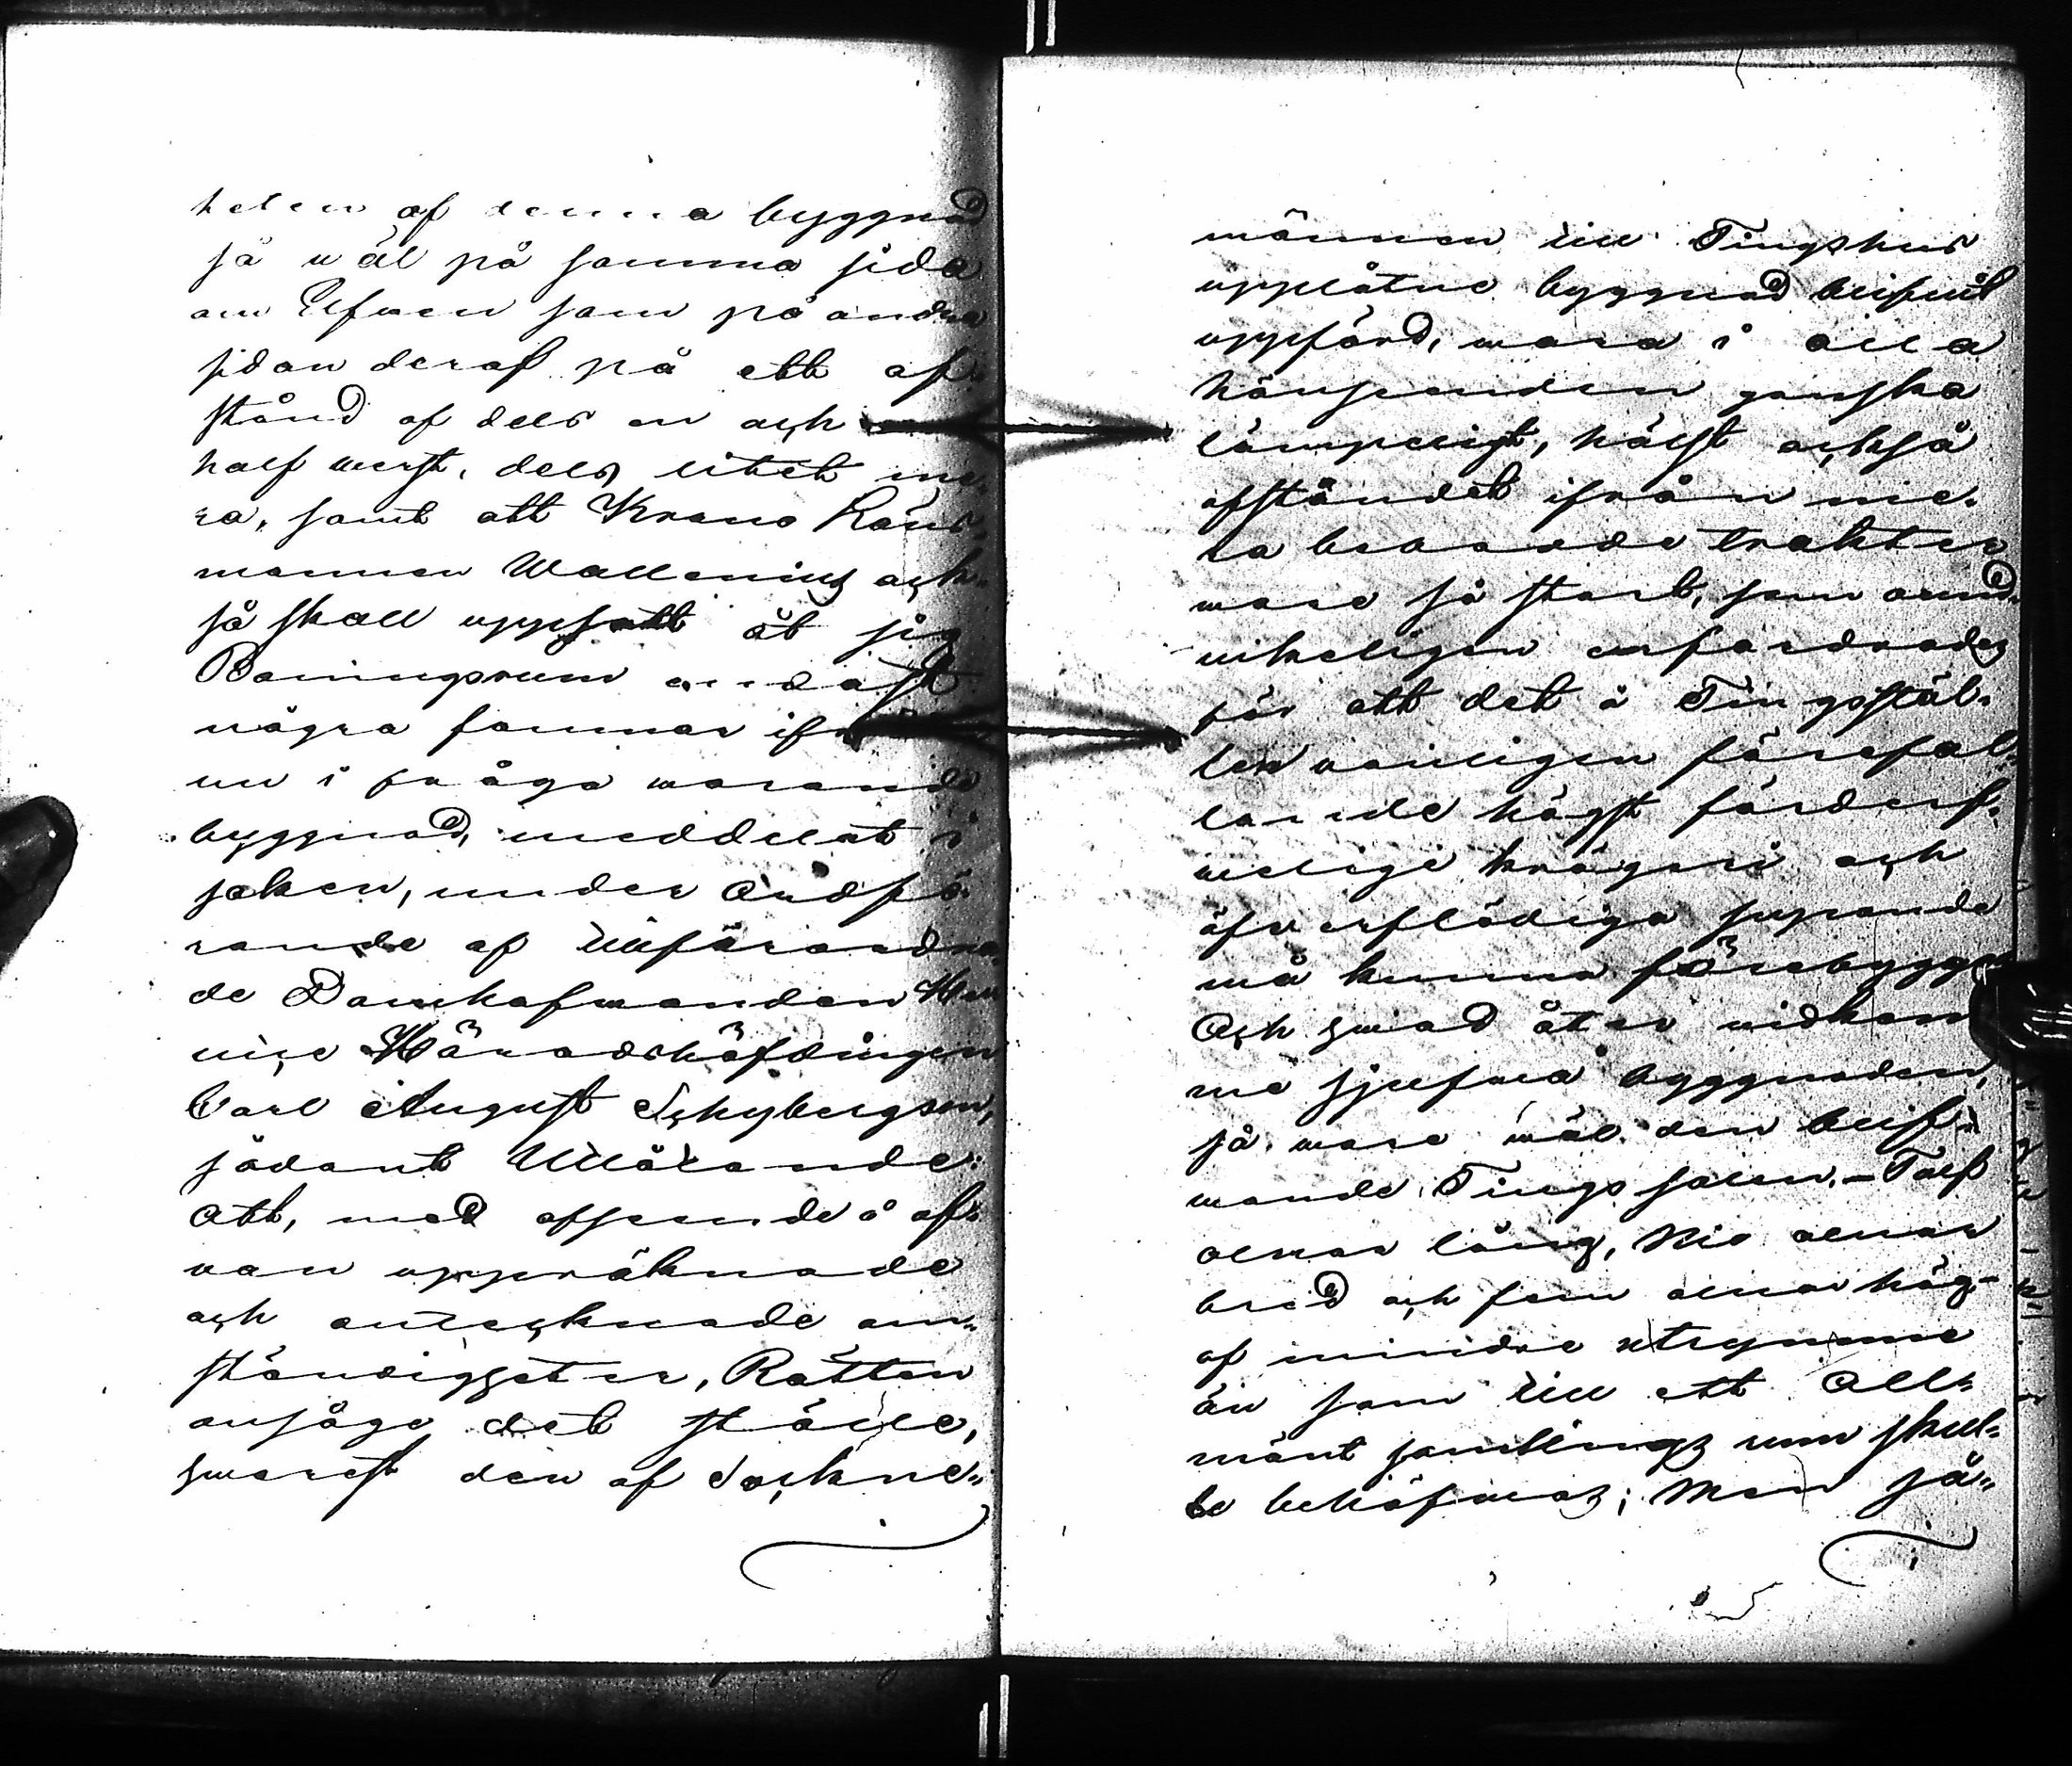 heten af denna byggnad
så wäl på samma sida
om Elfwen som på andra
sidan deraf på ett af-
stånd af dels en och
half werst, dels litet me-
ra, samt att Krono Läns-
mannen Wallenius ock-
så skall uppsatt åt sig
Boningsrum endast
några famnar ifrån
nu i fråga warande
byggnad, meddelat i
saken, under Ordfö-
rande af tillförordna-
de Domhafwanden Herr
vice Häradshöfdingen
Carl August Schybergson,
sådant Utlåtande:
Att, med afseende å of-
van uppräknade
och antecknade om-
ständigheter, Rätten
ansåge det ställe,
hwarest den af Sockne-
männen till Tingshus
upplåtne byggnad blifwit
uppförd, wara i alla
hänseenden ganska
lämpeligt, hälst också
afståndet ifrån me-
ra bebodde trakter
wore så stort, som ound-
vikeligen erfordrades
för att det å Tingsstäl-
len vanligen förefal-
lande högst förderf-
velige krögeri och
öfverflödiga supande
må kunna förebyggas
Och hwad åter widkom
me sjelfwa byggnaden,
så wore wäl den blif-
wande Tings salen, – Tolf
alnar lång, Nio alnar
bred och fem alnar hög –
af mindre utrymme
än som till ett All-
mänt samlings rum skul-
le behöfwas; Men så-